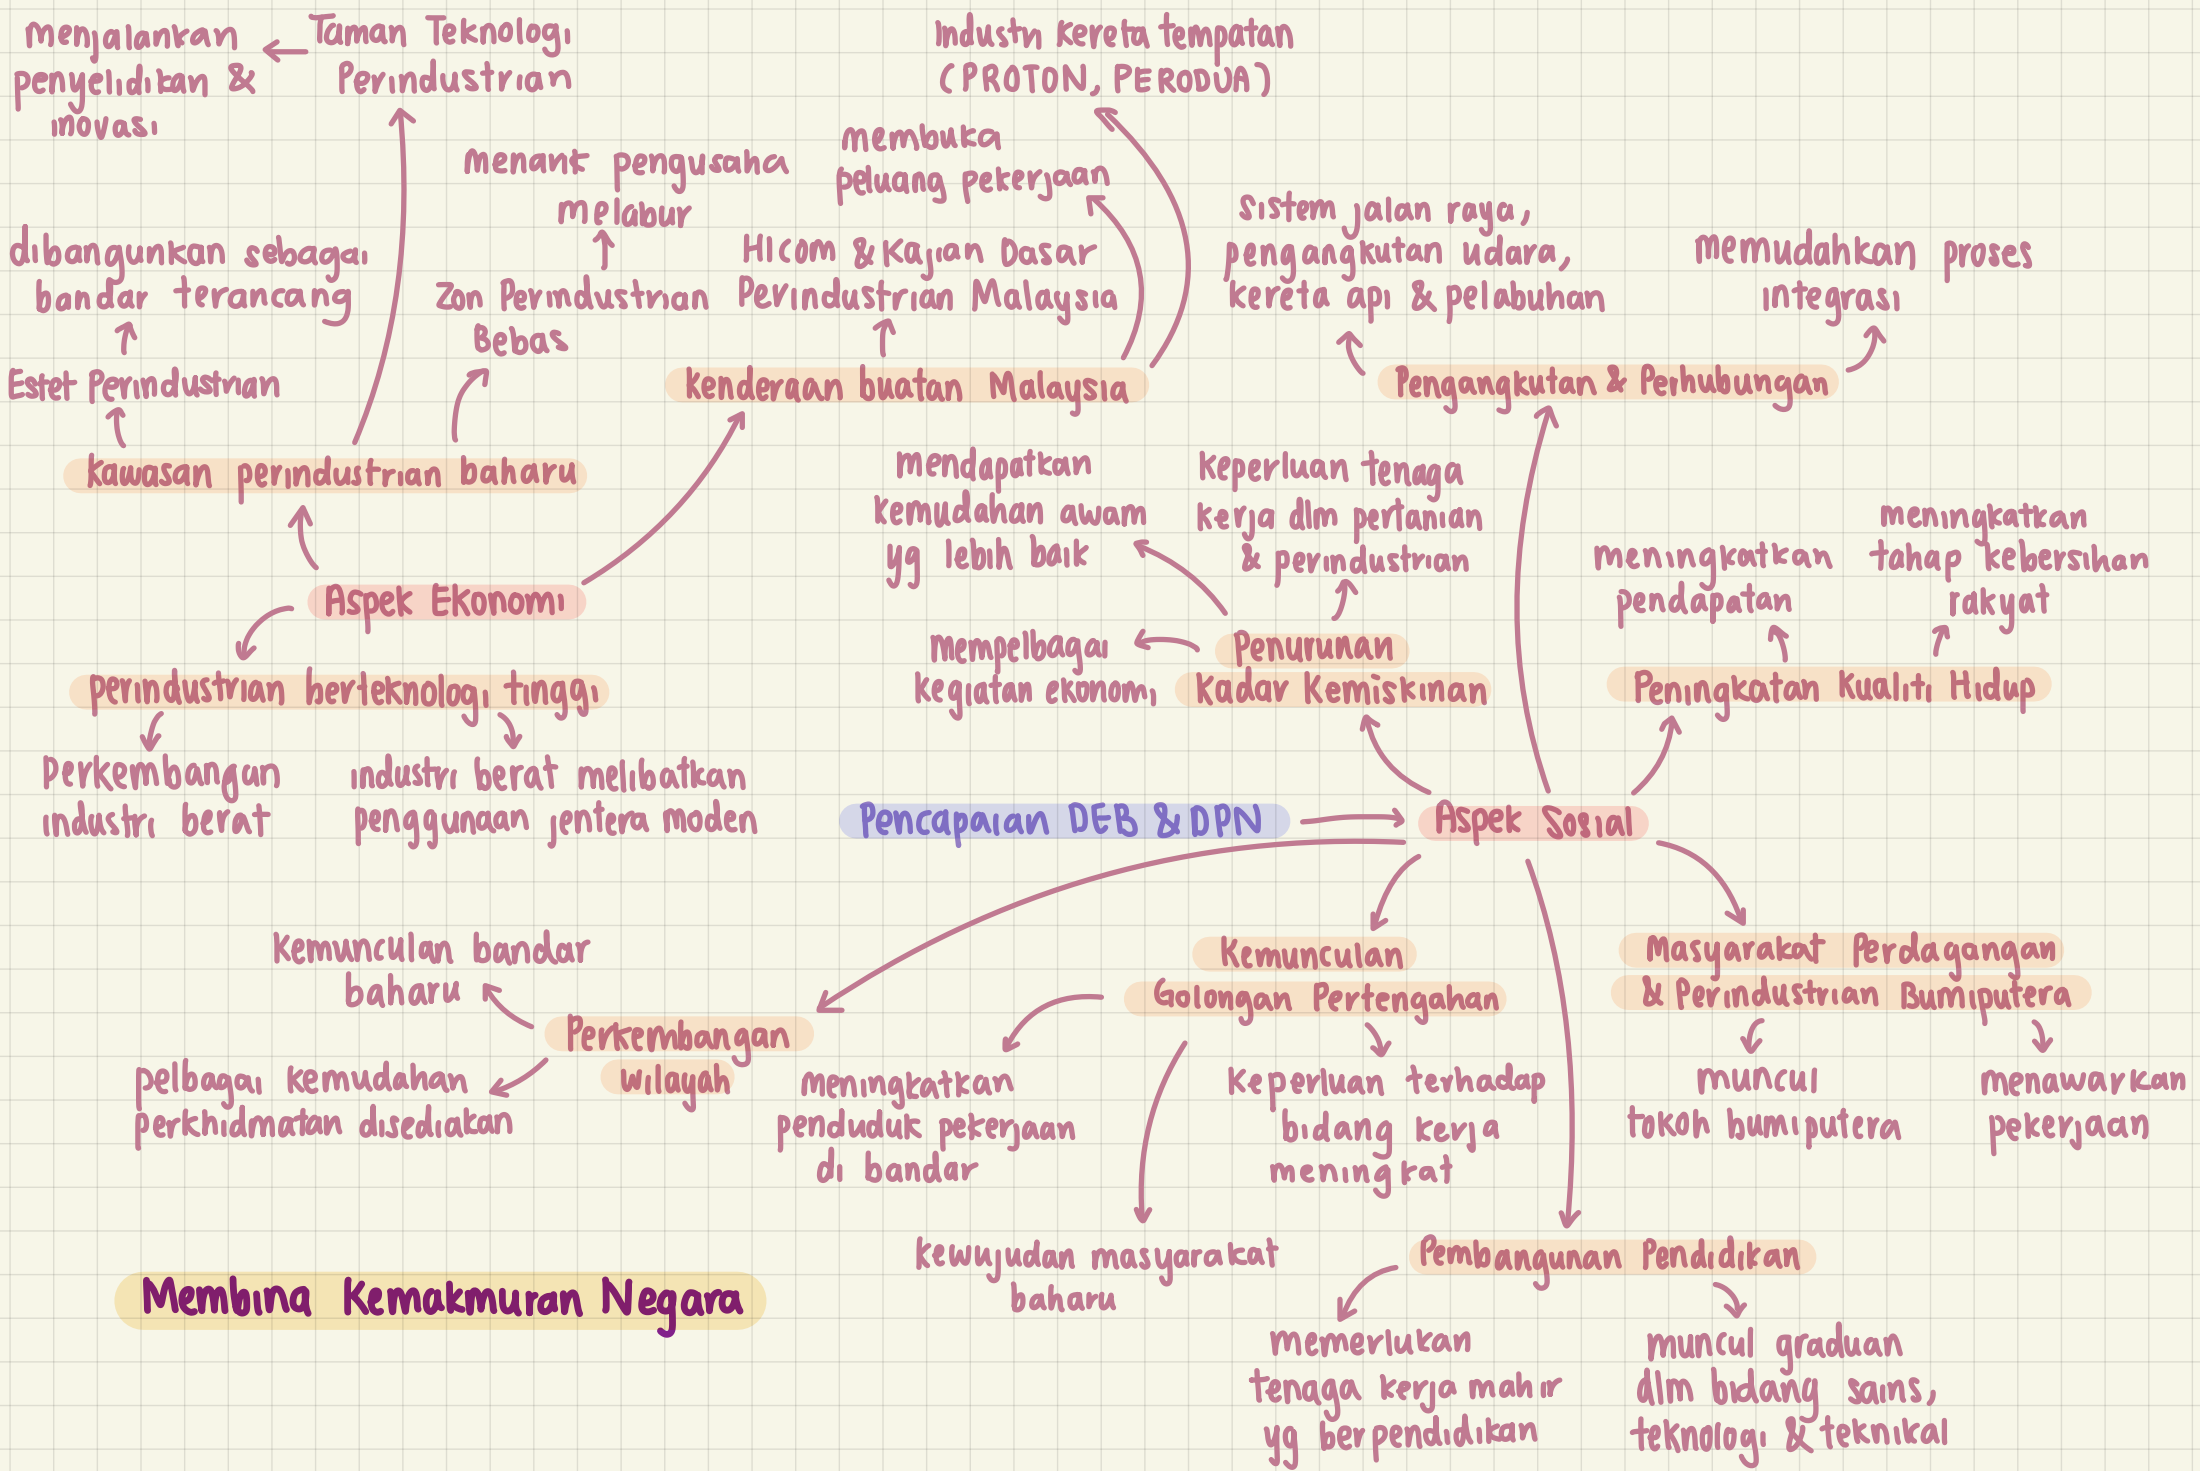 menjalankan
penyelidikan &
inovasi
Taman Teknologi
Perindustrian
Industri kereta tempatan
(PROTON, PERODUA)
membuka
peluang pekerjaan
menarik pengusaha
melabur
dibangunkan sebagai
bandar terancang
Zon Perindustrian
Bebas
HIcom & Kajian Dasar
Perindustrian Malaysia
sistem jalan raya,
pengangkutan udara,
kereta api & pelabuhan
memudahkan proses
integrasi
Estet Perindustrian
Kenderaan buatan Malaysia
Pengangkutan & Perhubungan
Kawasan perindustrian baharu
mendapatkan
kemudahan awam
yg lebih baik
keperluan tenaga
kerja dlm pertanian
& perindustrian
meningkatkan
pendapatan
meningkatkan
tahap kebersihan
rakyat
Aspek Ekonomi
mempelbagai
kegiatan ekonomi
Penurunan
Kadar Kemiskinan
Peningkatan Kualiti Hidup
perindustrian berteknologi tinggi
perkembangan
industri berat
industri berat melibatkan
penggunaan jentera moden
Pencapaian DEB & DPN
Aspek Sosial
Kemunculan bandar
baharu
Perkembangan
wilayah
pelbagai kemudahan
perkhidmatan disediakan
Kemunculan
Golongan Pertengahan
Masyarakat Perdagangan
& Perindustrian Bumiputera
meningkatkan
penduduk pekerjaan
di bandar
Keperluan terhadap
bidang kerja
meningkat
muncul
tokoh bumiputera
menawarkan
pekerjaan
kewujudan masyarakat
baharu
Pembangunan Pendidikan
Membina Kemakmuran Negara
memerlukan
tenaga kerja mahir
yg berpendidikan
muncul graduan
dlm bidang sains,
teknologi & teknikal